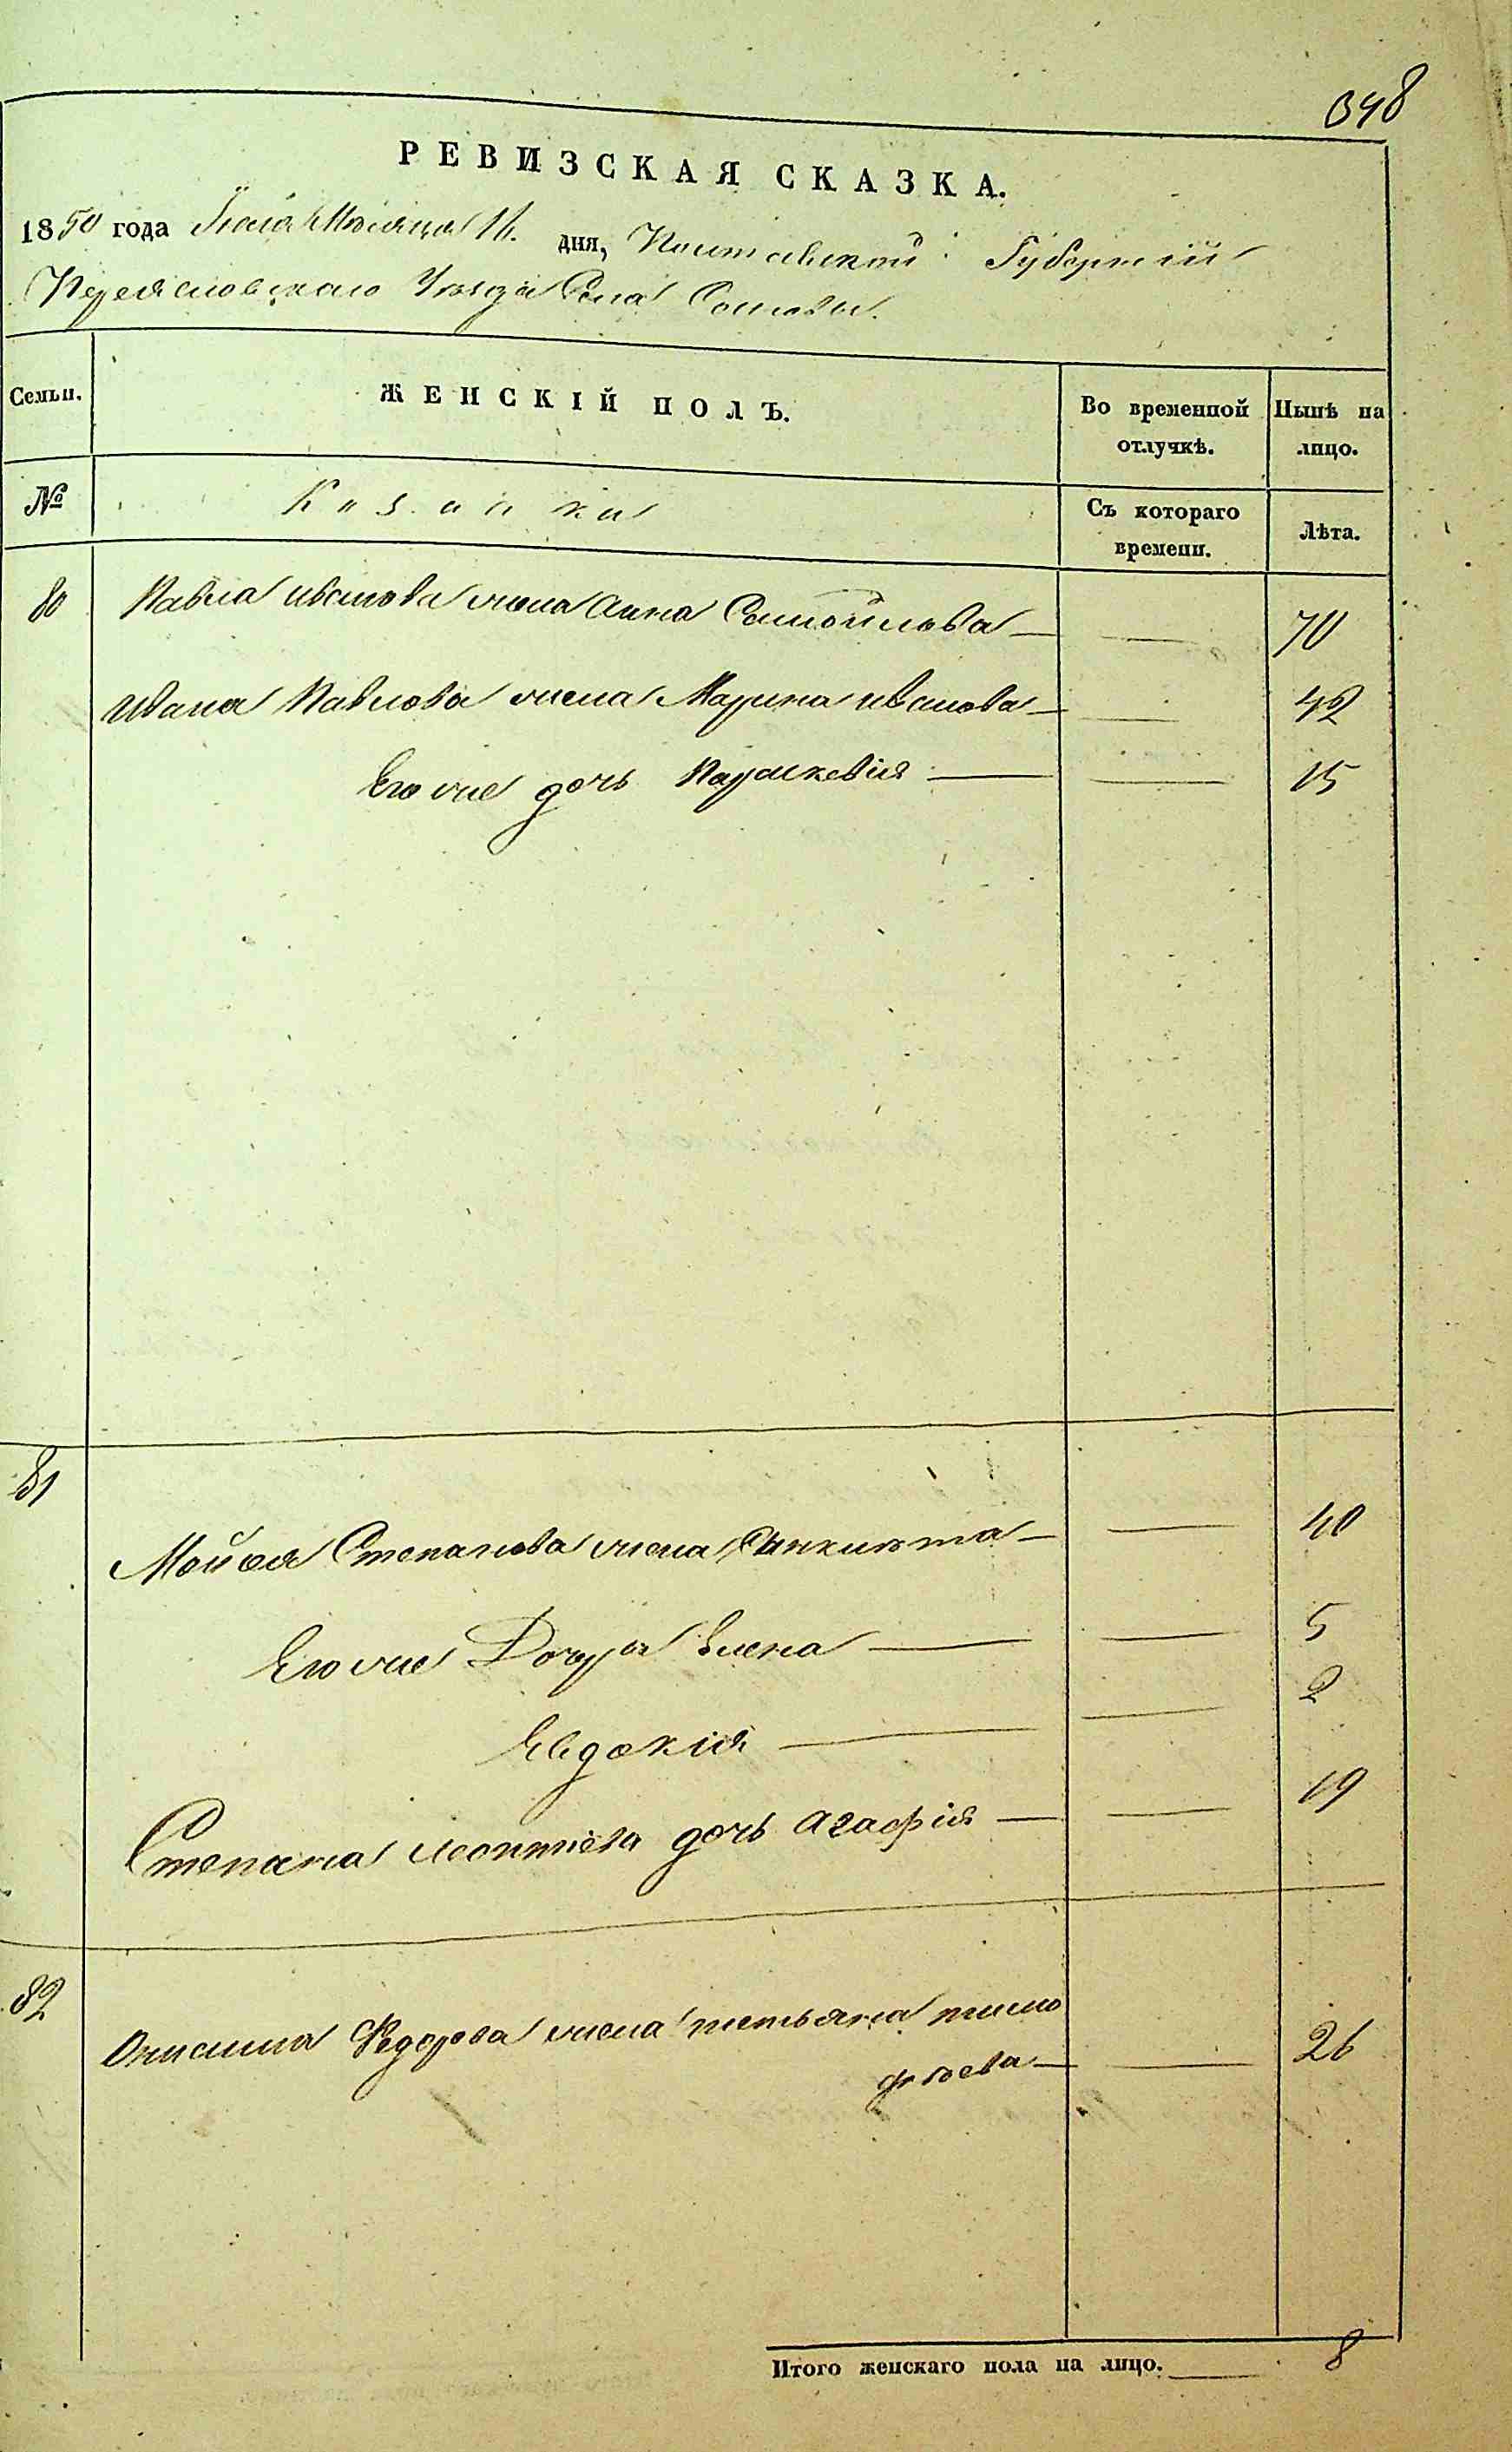 348
РЕВИЗСКАЯ СКАЗКА.
1850 года Мѣсяца дня, Полтавской Губернiи
Переясловскаго Уѣзда Села Сошкова
Семьи. ЖЕНСКIЙ ПОЛЪ. Во временной отлучкѣ. Нынѣ на лицо.
№ Козачки Съ котораго времени. Лѣта.
80 Павла иванова жена Анна Самойлова — — 70
Ивана Павлова жена Марина иванова — — 42
Его же дочь Параскевiя — — 15
81
Мойсея Степанова жена — — 40
Его же Дочери Елена — — 5
Евдокiя — — 2
Степана леонтiева дочь Агафiя — — 19
82
Онисима Федорова жена татьяна тимо
фѣева — — 26
Итого женскаго пола на лицо. 8